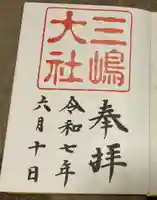 奉拝
三嶋
大社
令和七年
六月十日